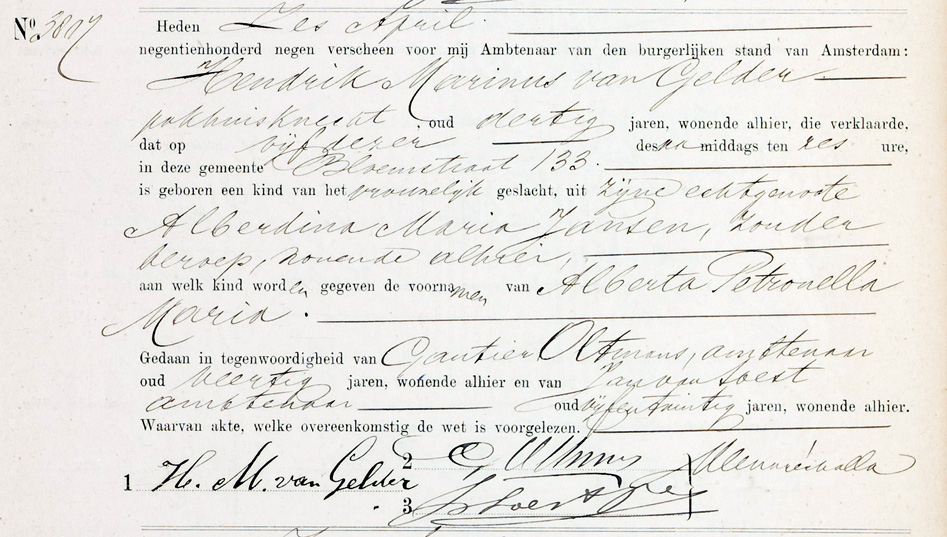 No. 3817
Heden Zes April.
negentienhonderd negen verscheen voor mij Ambtenaar van den burgerlijken stand van Amsterdam:
Hendrik Marinus van Gelder.
pakhuisknecht, oud dertig jaren, wonende alhier, die verklaarde,
dat op vijf dezer des na middags ten zes ure,
in deze gemeente Bloemstraat 133.
is geboren een kind van het vrouwelijk geslacht, uit zijne echtgenoote
Alberdina Maria Jansen, zonder
beroep, wonende alhier,
aan welk kind worden gegeven de voornamen van Alberta Petronella
Maria.
Gedaan in tegenwoordigheid van Oltmans, ambtenaar
oud veertig jaren, wonende alhier en van Jan van Soest
ambtenaar oud vijfentwintig jaren, wonende alhier.
Waarvan akte, welke overeenkomstig de wet is voorgelezen.
1 H. M. van Gelder
2
3